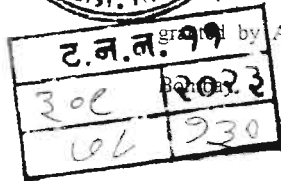 granted by
ट.न.न. ११
Bombay
३०९ २०२३
७८ १३०